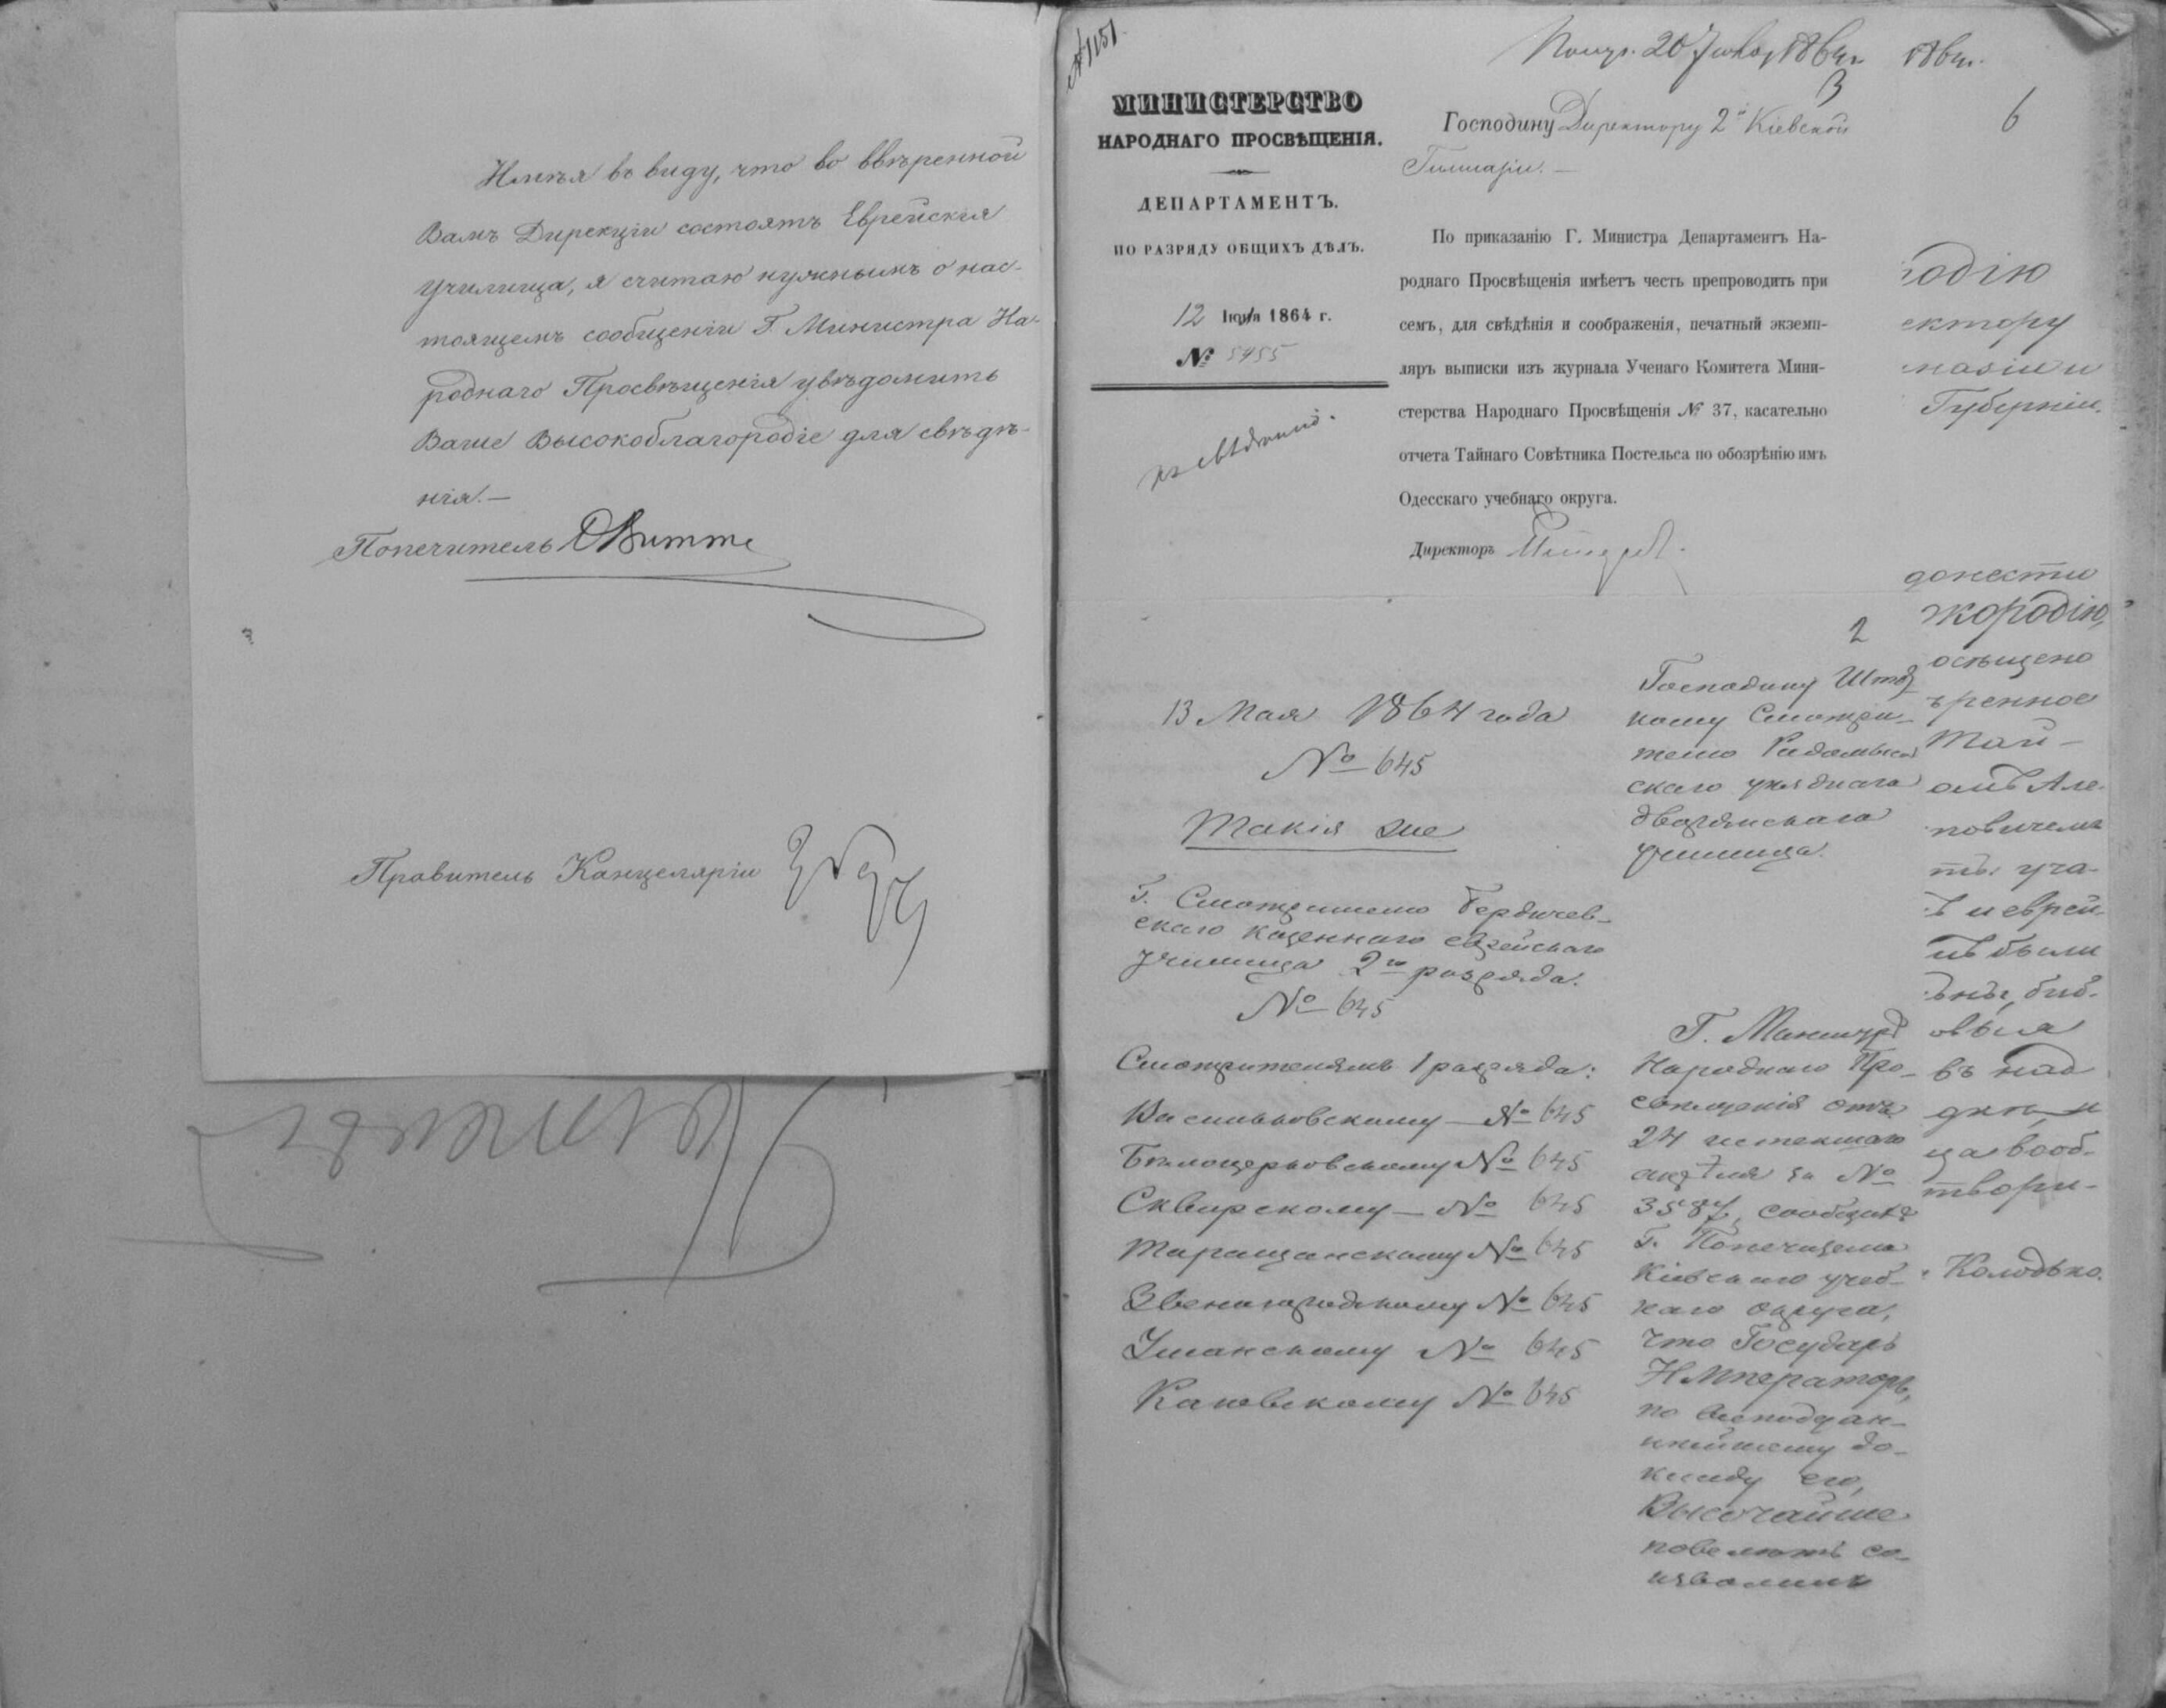 Имѣя въ виду, что во ввѣренной
Вамъ Дирекціи состоятъ Еврейскія
училища, я считаю нужнымъ о нас-
тоящемъ сообщеніи Г. Министра На-
роднаго Просвѣщенія увѣдомить
Ваше Высокоблагородіе для свѣдѣ-
нія.—
Попечитель Витте
Правитель Канцеляріи
№ 1151
20 1864
МИНИСТЕРСТВО
НАРОДНАГО ПРОСВѢЩЕНІЯ.
ДЕПАРТАМЕНТЪ.
ПО РАЗРЯДУ ОБЩИХЪ ДѢЛЪ.
12 Іюня 1864 г.
№ 5455
къ свѣдѣнію.
3
Господину Директору 2й Кіевской
Гимназіи.—
По приказанію Г. Министра Департаментъ На-
роднаго Просвѣщенія имѣетъ честь препроводить при
семъ, для свѣдѣнія и соображенія, печатный экземп-
ляръ выписки изъ журнала Ученаго Комитета Мини-
стерства Народнаго Просвѣщенія № 37, касательно
отчета Тайнаго Совѣтника Постельса по обозрѣнію имъ
Одесскаго учебнаго округа.
Директоръ
2
13 Мая 1864 года
№ 645
Такія же
Г. Смотрителю Бердичев-
скаго казеннаго еврейскаго
училища 2го разряда.
№ 645
Смотрителямъ 1 разряда:
Васильковскому — № 645
Бѣлоцерковскому № 645
Сквирскому — № 645
Таращанскому № 645
Звенигородскому № 645
Уманскому № 645
Каневскому № 645
Господину Штат-
ному Смотри-
телю Радомысль-
скаго уѣзднаго
дворянскаго
училища.
Г. Министръ
Народнаго Про-
свѣщенія отъ
24 истекшаго
апрѣля за №
3587, сообщилъ
Г. Попечителю
Кіевскаго учеб-
наго округа,
что Государь
Императоръ,
по всеподдан-
нѣйшему до-
кладу его,
Высочайше
повелѣть со-
изволилъ
6
1864.
родію
ектору
назіи и
Губерніи.
донести
кородію,
осѣщено
ѣренное
Тай-
омъ Але-
повичемъ
ты уча-
ъ и еврей-
ъ были
ѣны, биб-
овыя
въ над
дкѣ, и
ца вооб-
твори-
Колодько.